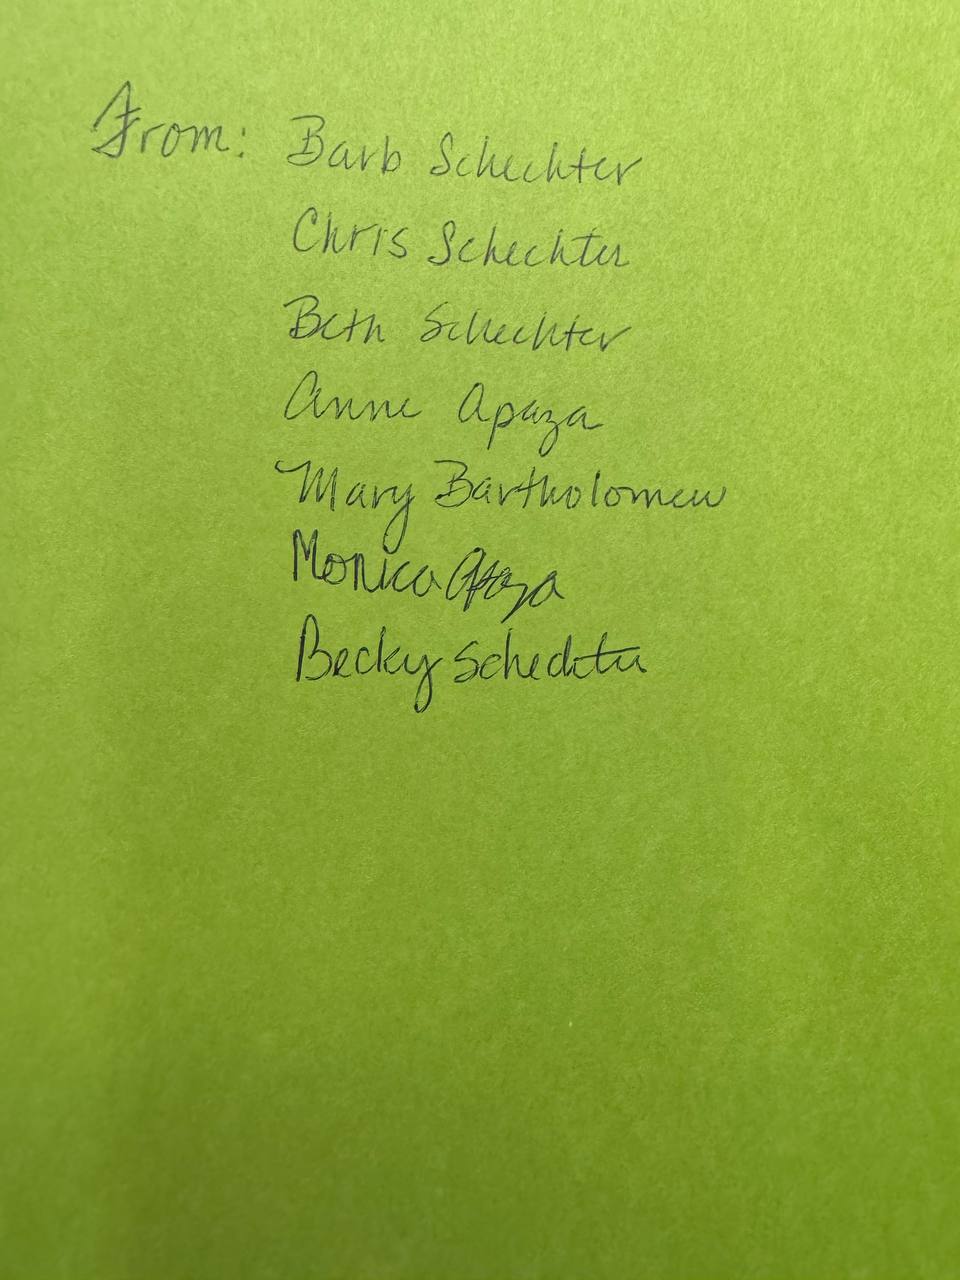 From: Barb Schechter
Chris Schechter
Beth Schechter
Anne Apaza
Mary Bartholomew
Monica Apaza
Becky Schechter